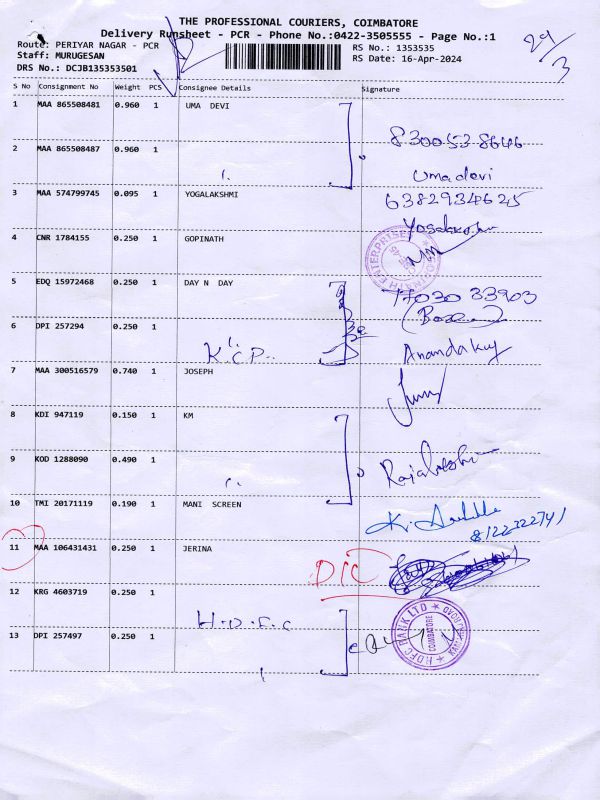 THE PROFESSIONAL COURIERS, COIMBATORE
Delivery Runsheet - PCR - Phone No.:0422-3505555 - Page No.:1
29/3
Route: PERIYAR NAGAR - PCR
RS No.: 1353535
Staff: MURUGESAN
RS Date: 16-Apr-2024
DRS No.: DCJB135353501
S No Consignment No Weight PCS Consignee Details Signature
1 MAA 865508481 0.960 1 UMA DEVI
8300538646
2 MAA 865508487 0.960 1
Umadevi
3 MAA 574799745 0.095 1 YOGALAKSHMI 6382934625
4 CNR 1784155 0.250 1 GOPINATH
5 EDQ 15972468 0.250 1 DAY N DAY
77030 33903
6 DPI 257294 0.250 1
K.C.P. Anandakuy
7 MAA 300516579 0.740 1 JOSEPH
8 KDI 947119 0.150 1 KM
9 KOD 1288090 0.490 1
10 TMI 20171119 0.190 1 MANI SCREEN
8122322741
11 MAA 106431431 0.250 1 JERINA
12 KRG 4603719 0.250 1
H.D.F.C
HDFC BANK LTD
COIMBATORE
13 DPI 257497 0.250 1